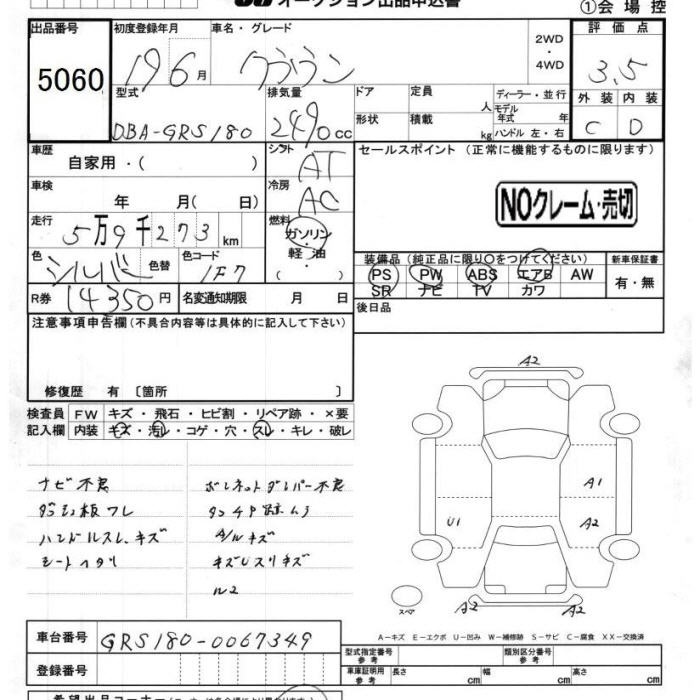 オークション出品申込書
①会場控
出品番号
5060
初度登録年月
19 6 月
車名・グレード
クラウン
2WD
・
4WD
評価点
3.5
外装 内装
C D
型式
DBA-GRS180
排気量
2490 cc
ドア
形状
定員 人
積載 kg
ディーラー・並行
モデル年式 年
ハンドル 左・右
車歴
自家用・( )
シフト
AT
セールスポイント (正常に機能するものに限ります)
NOクレーム・売切
車検
年 月( 日)
冷房
AC
走行
5万9千273 km
燃料
ガソリン・
軽油・
( )
色
シルバー
色替
色コード
1F7
装備品 (純正品に限り○をつけてください)
新車保証書
PS PW ABS エアB AW
SR ナビ TV カワ
有・無
R券 14350円
名変通知期限 月 日
後日品
注意事項申告欄 (不具合内容等は具体的に記入して下さい)
修復歴 有 〔箇所 〕
検査員記入欄
FW キズ・飛石・ヒビ割・リペア跡・×要
内装 キズ・汚レ・コゲ・穴・スレ・キレ・破レ
ナビ不良
ダッシュ板ワレ
ハンドルスレ、キズ
シートヘタリ
ボンネットダンパー不良
タッチP跡ムラ
A/Wキズ
キズUスリキズ
ルス
A2
A1
U1
A2
スペア
A2
A2
A-キズ E-エクボ U-凹み W-補修跡 S-サビ C-腐食 XX-交換済
車台番号
GRS180-0067349
登録番号
型式指定番号 参考
類別区分番号 参考
車庫証明用 参考
長さ cm
幅 cm
高さ cm
希望出品コーナー